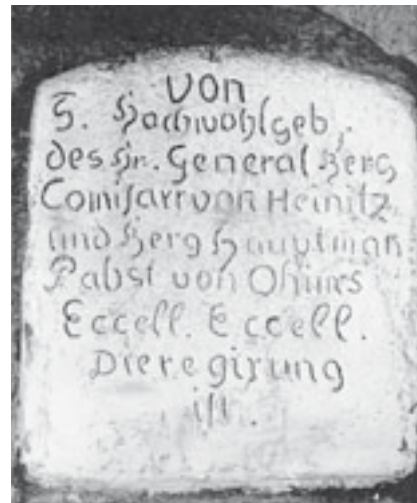 von
S. Hochwohlgeb.
des Hr. General Berg
Comisarr von Heinitz
und Berg Hauptman
Pabst von Ohims
Eccell. Eccell.
Die regirung
ist.